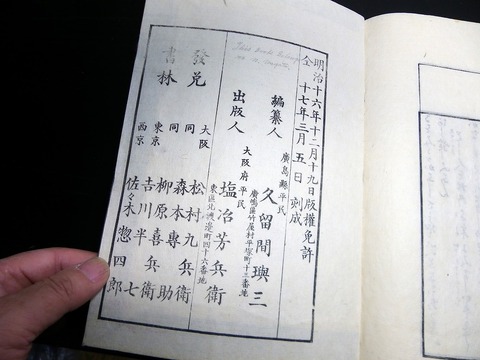 明治十六年十二月十九日版權免許
仝十七年三月五日刻成
廣島縣平民
編纂人 久留間璵三
大阪府平民
出版人 塩冶芳兵衛
東區北渡邊町四十六番地
These Books Belongs
發兌
書林
大阪 松村九兵衛
同 森本專助
同 柳原喜兵衛
東京 吉川半七
西京 佐々木惣四郎